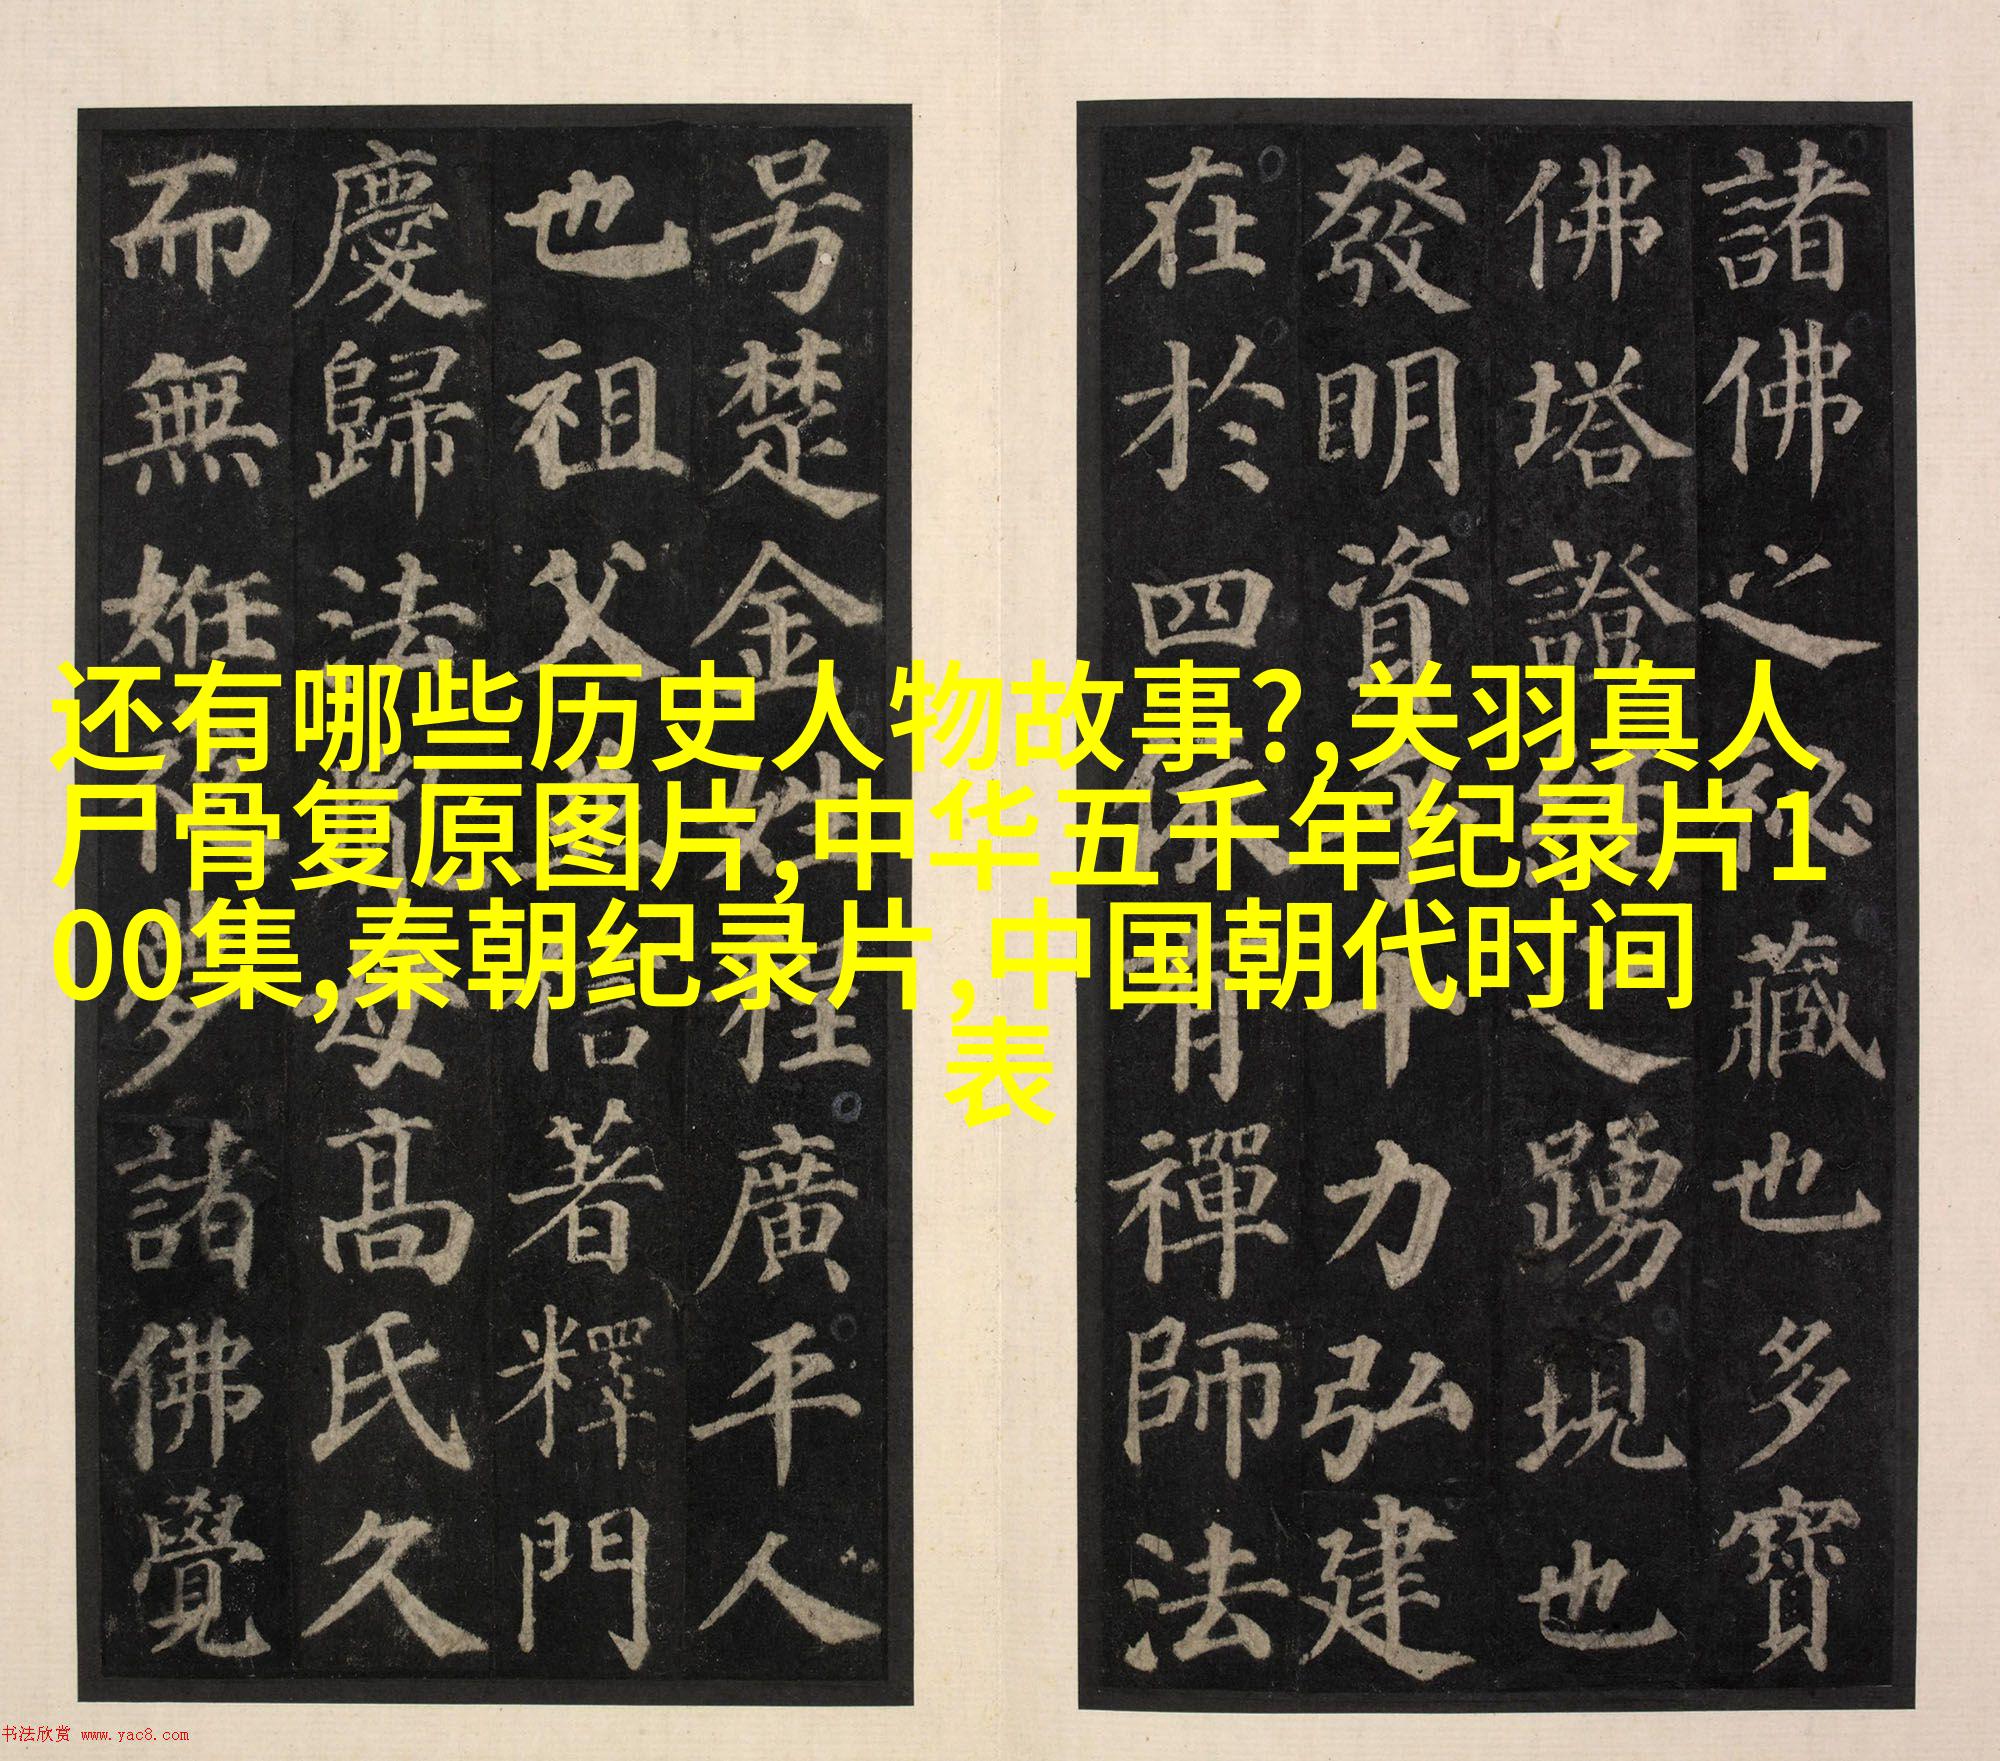 还有哪些历史人物故事?,关羽真人
尸骨复原图片,中华五千年纪录片1
00集,秦朝纪录片,中国朝代时间
表
諸佛之祕藏也多寶
佛塔證經之踴現也
發明資乎十力弘建
在於四依有禪師法
号楚金姓程廣平人
也祖父並信著釋門
慶歸法胤母高氏久
而無姙夜夢諸佛覺
书法欣赏 www.yac8.com